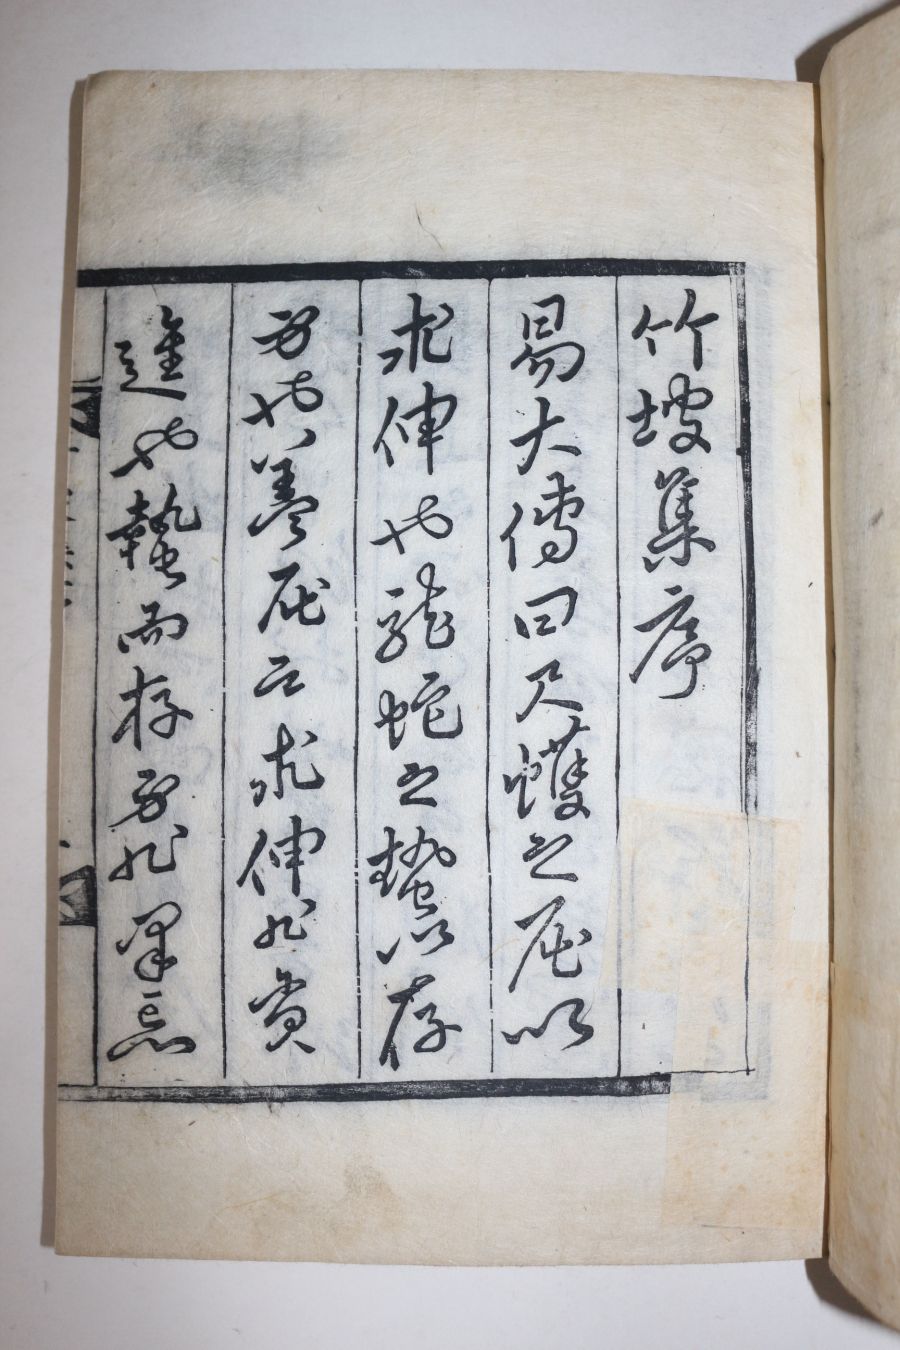 竹坡集序
易大傳曰尺蠖之屈以
求伸也龍蛇之蟄以存
身也盖屈之求伸非貪
進也蟄而存身非果忘